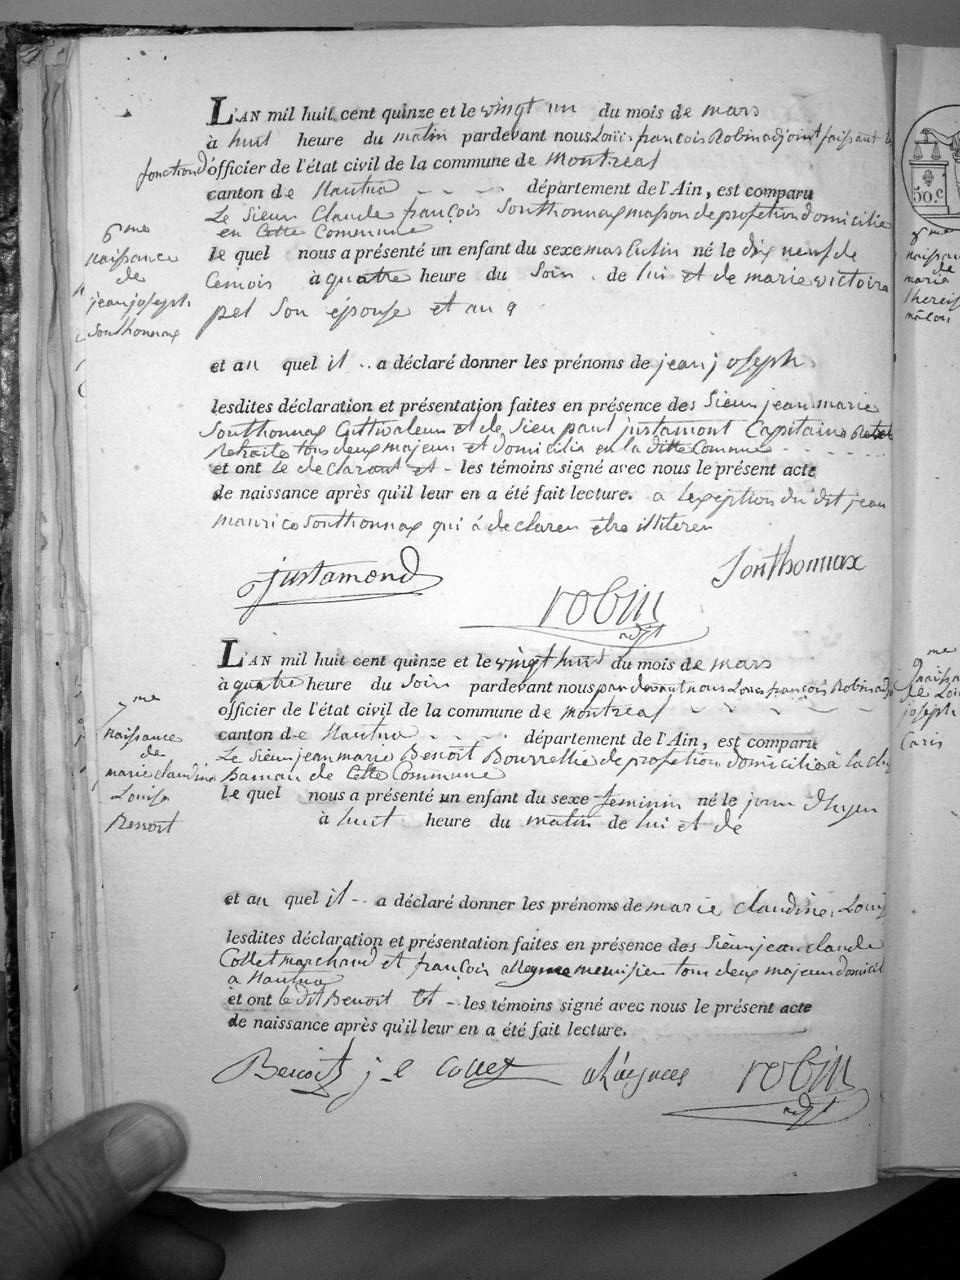 L'AN mil huit cent quinze et le vingt un du mois de mars
à huit heure du matin pardevant nous Louis françois Robin adjoint faissant
fonctiond officier de l'état civil de la commune de Montreal
canton de Nantua département de l'Ain, est comparu
Le Sieur Claude françois Sonthonnax masson de profetion domicilie
en Cette Commune
le quel nous a présenté un enfant du sexe masculin né le dix neuf de
Cemois à quatre heure du Soir de lui et de marie victoire
pel Son épouse et au q
et au quel il a déclaré donner les prénoms de jean joseph
lesdites déclaration et présentation faites en présence des Sieur jean marie
Sonthonnax Cultivateur et de Sieu paul justamont Capitaine
Retraite tous deux majeur et domicilia en la ditte Commune
et ont le declarant et les témoins signé avec nous le présent acte
de naissance après qu'il leur en a été fait lecture. a lexeption du dit jean
maurice Sonthonnax qui á declarer étre illiterer
6me
naissance
de
jean joseph
Sonthonnax
justamond
Sonthonnax
robin
adjt
L'AN mil huit cent quinze et le vingt huit du mois de mars
à quatre heure du Soir pardevant nous pardevant nous Louis françois Robin adj
officier de l'état civil de la commune de Montreal
canton de Nantua département de l'Ain, est comparu
Le Sieur jean marie Benoit Bourrellie de profetion domicilie à la
de Cette Commune
le quel nous a présenté un enfant du sexe feminin né le jour dhyer
à huit heure du matin de lui et de
et au quel il a déclaré donner les prénoms de marie claudine Louis
lesdites déclaration et présentation faites en présence des Sieur jean claude
Collet marchand et françois menuisier tous deux majeur domicil
a Nantua
et ont le dit Benoit et les témoins signé avec nous le présent acte
de naissance après qu'il leur en a été fait lecture.
7me
naissance
de
marie claudine
Louise
Benoit
Benoit j e Collet robin
adjt
50 c
8me
naissan
de
marie
9me
naissa
de Loui
joseph